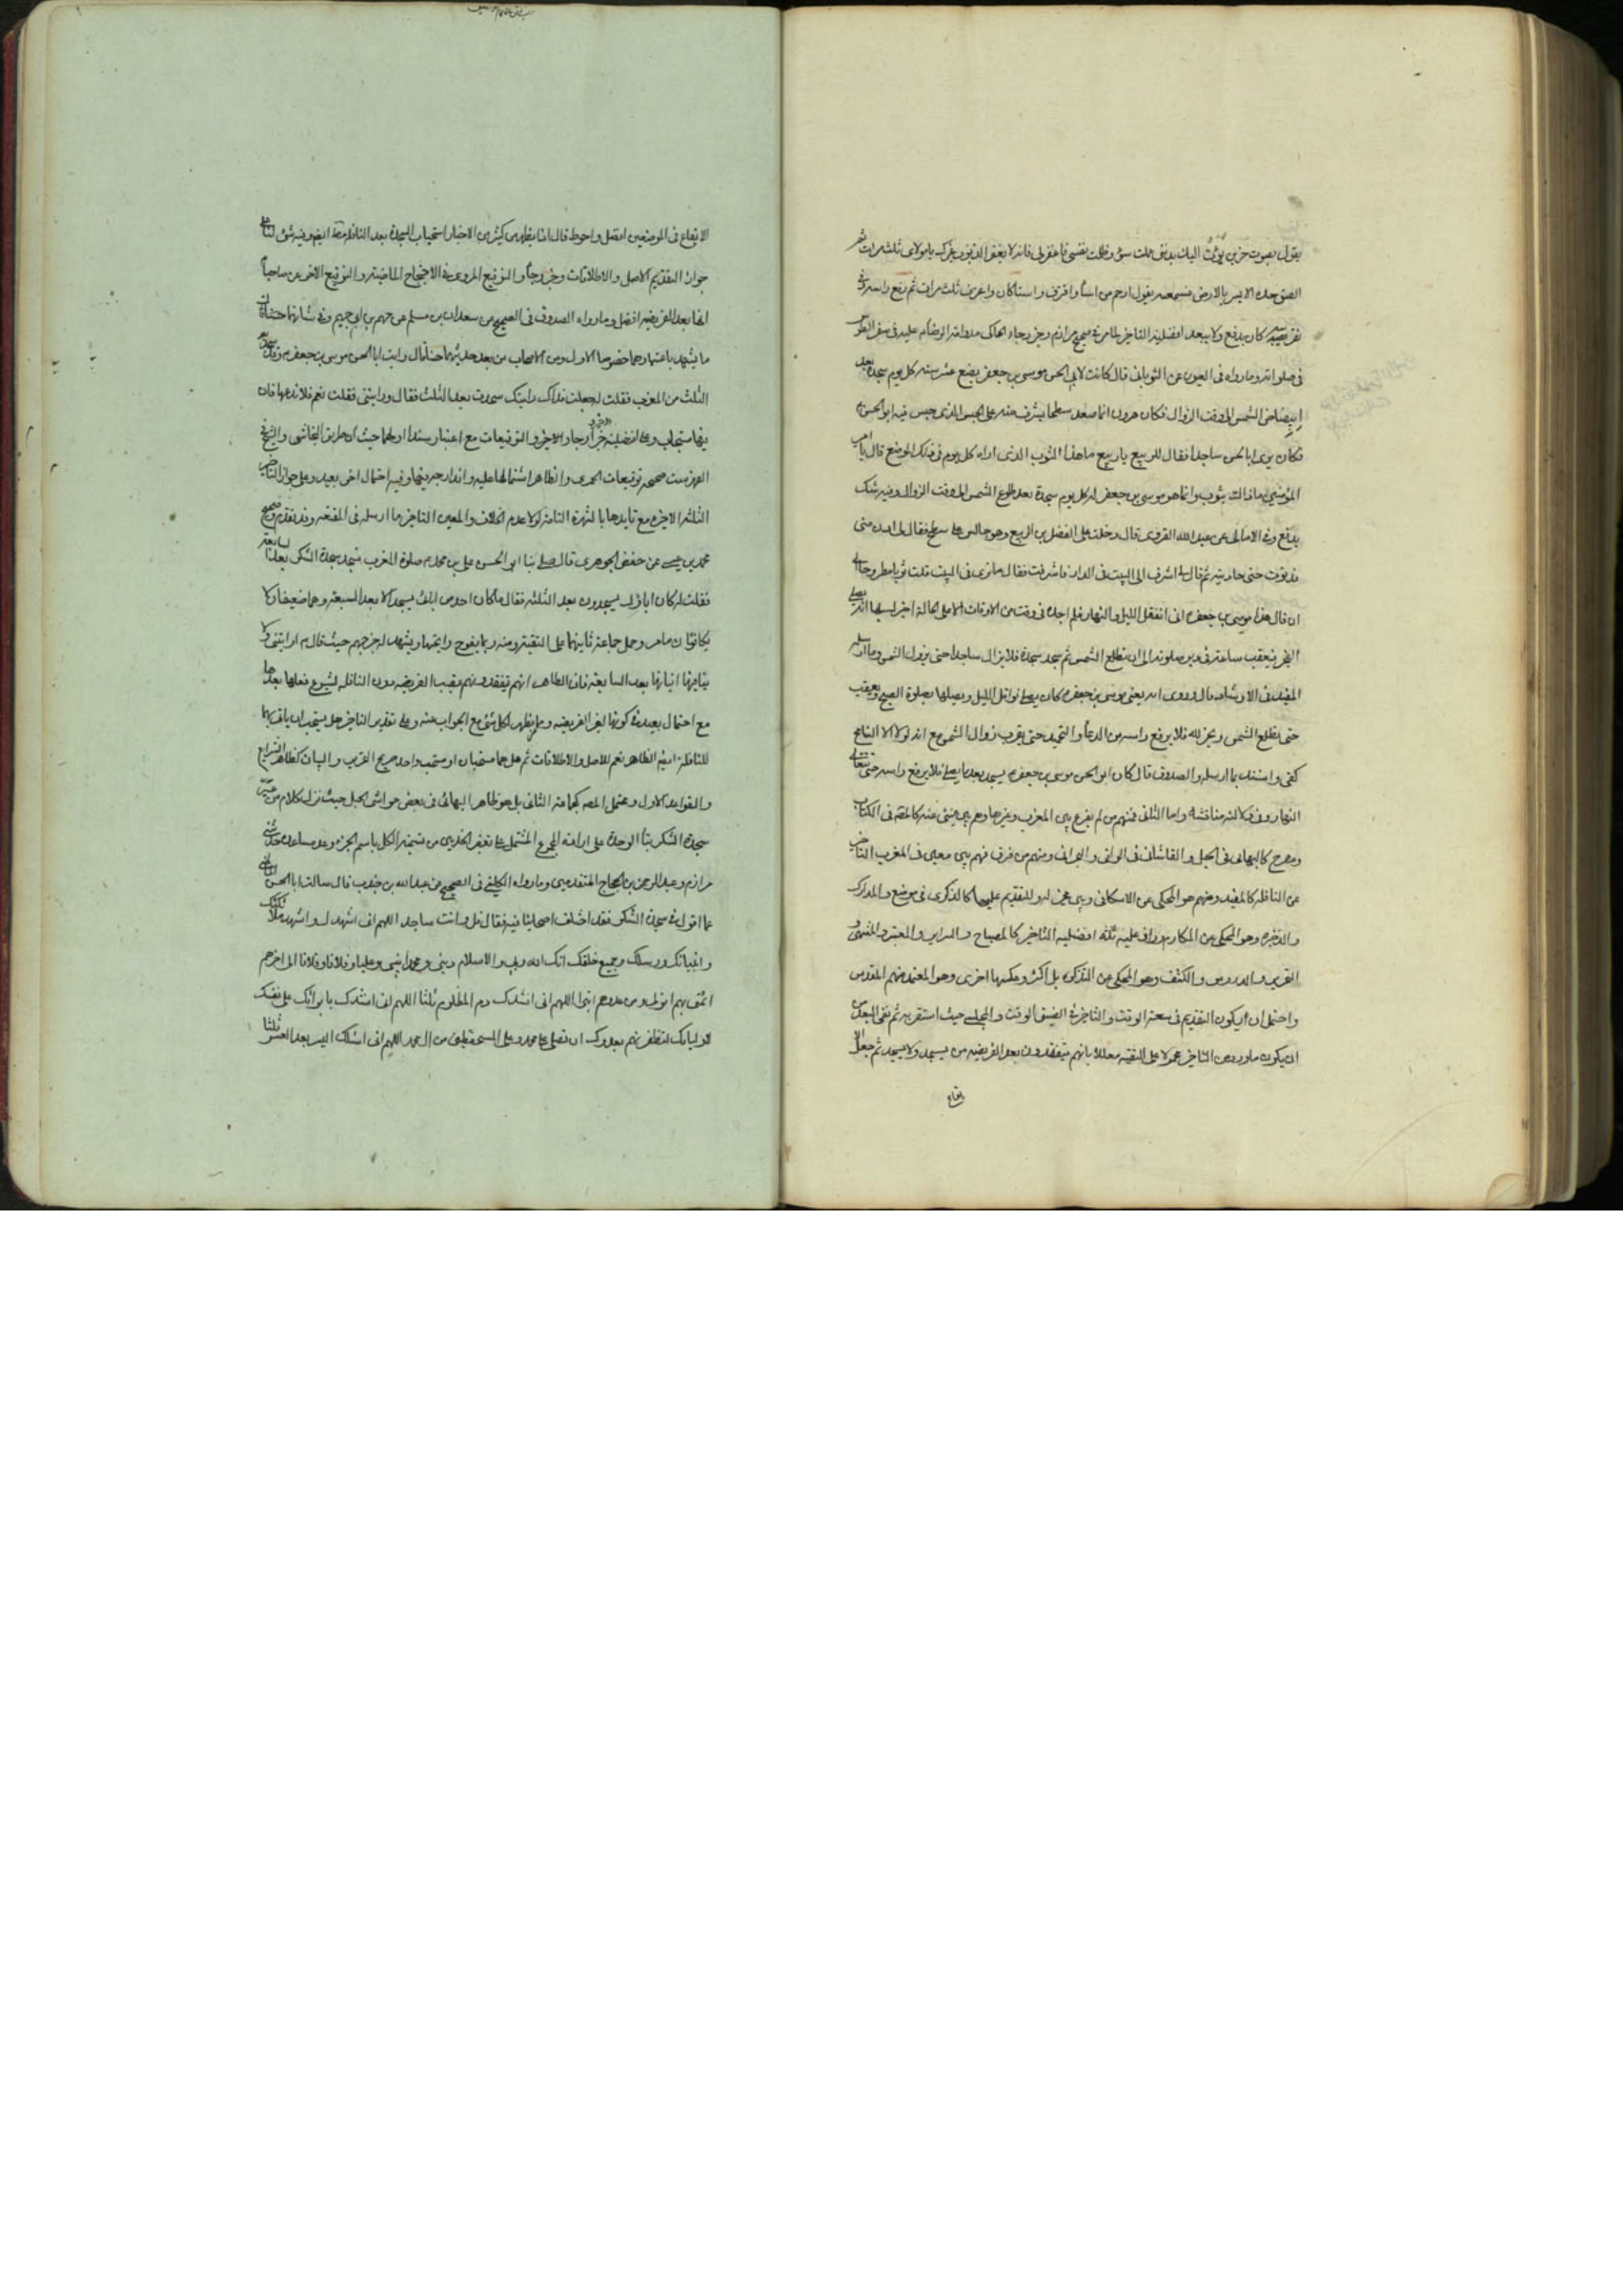 يقول بصوت حزين بؤت اليك بذنبي عملت سوء وظلمت نفسي فاغفر لي فانه لا يغفر الذنوب غيرك يا مولاي ثلث مرات ثم
الصق خده الايسر بالارض فسمعته يقول ارحم من اساء واقترف واستكان واعترف ثلث مرات ثم رفع راسه وفي
كان يدفع ولا يبعد افضلية التاخير لما مر في صحيح مرازم وخبر رجاء الحاكي مداومة الرضا ع عليه في سفر
في صلواته وما رواه في العيون عن الثوباني قال كانت لابي الحسن موسى بن جعفر بضع عشر سنة كل يوم سجدة بعد
ابيضاض الشمس الى وقت الزوال فكان هرون انما صعد سطحا يشرف منه على الحبس الذي حبس فيه ابو الحسن ع
فكان يرى ابا الحسن ساجدا فقال للربيع يا ربيع ما هذا الثوب الذي اراه كل يوم في ذلك الموضع قال يا امير
المؤمنين ما ذاك بثوب وانما هو موسى بن جعفر له كل يوم سجدة بعد طلوع الشمس الى وقت الزوال وفيه شك
يدفع وفي الامالي عن عبد الله القروي قال دخلت على الفضل بن الربيع وهو جالس على سطح فقال لي ادن مني
فدنوت حتى حاذيته ثم قال لي اشرف الى البيت في الدار فاشرفت فقال ما ترى في البيت قلت ثوبا مطروحا الى
ان قال هذا موسى بن جعفر ع اني اتفقد الليل والنهار فلم اجده في وقت من الاوقات الا على الحالة اخبرك بها انه يصلي
الفجر فيعقب ساعة في دبر صلوته الى ان تطلع الشمس ثم سجد سجدة فلا يزال ساجدا حتى تزول الشمس وما ارسله
المفيد في الارشاد قال وروى انه يعني موسى بن جعفر ع كان يصلي نوافل الليل ويصلها بصلوة الصبح ويعقب
حتى تطلع الشمس ويخر لله فلا يرفع راسه من الدعاء والتحميد حتى يقرب زوال الشمس مع انه لولا الا التاسي
كفى واستدل بما ارسله الصدوق قال كان ابو الحسن موسى بن جعفر ع يسجد بعد ما يصلي فلا يرفع راسه حتى يتعالى
النهار وفي دلالته مناقشة واما الثاني فمنهم من لم يفرق بين المغرب وغيرها وهم بين مبني عنه كالمص في الكتاب
ومصرح كالبهائي في الحبل والقاشاني في الوافي والبحراني ومنهم من فرق فهم بين معين في المغرب التاخير
عن النافلة كالمفيد ومنهم هو المحكي عن الاسكافي وبين مجوز له وللتقديم عليها كالذكرى في موضع والمدارك
والذخيرة وهو المحكي عن المكارم وزاد عليه ثلثه افضلية التاخير كالمصباح والسرائر والمعتبر والمنتهى و
التحرير والدروس والكشف وهو المحكي عن التذكرة بل اكثر وعكسها اخرى وهو المعتمد منهم المقدس
واحتمل ان يكون التقديم في سعة الوقت والتاخير في الضيق الوقت والمجلسي حيث استقربه ثم نفى البعد من
ان يكون ما ورد من التاخير محمولا على التقية معللا بانهم يتفقدون بعد الفريضة من يسجد ولا يسجد ثم جعل الا
الايقاع في الموضعين افضل واحوط قال انما يظهر من كثير من الاخبار استحباب السجدة بعد النافلة
جواز التقديم الاصل والاطلاقات وخبر رجاء والتوقيع المروي في الاحتجاج الماضية والتوقيع الاخر عن صاحبنا
انها بعد الفريضة افضل وما رواه الصدوق في الصحيح عن سعدان بن مسلم عن جهم بن ابي جهيم وفي
ما يشهد باعتبارهما خصوصا الاول ومن الاصحاب من يعد حديثهما حسنا قال رايت ابا الحسن موسى بن جعفر ع وقد سجد بعد
الثلث من المغرب فقلت له جعلت فداك رايتك سجدت بعد الثلث فقال ورايتني فقلت نعم فلا تدعها فان
فيها مستجاب وعلى افضليته خبرا رجاء والاخير والتوقيعات مع اعتبار سندا اولهما حيث ان طريق النجاشي والشيخ في
الفهرست صحيح توقيعات الحميري والظاهر اشتمالها عليه واندارجه فيها وفيه احتمال اخر بعيد وعلى جواز التاخير
الثلثة الاخيرة مع تاييدها بالشهرة التامة لولا عدم الخلاف والمعين التاخير ما ارسله في المقنعة وقد تقدم وصحيح
محمد بن عيسى عن حفص الجوهري قال صلى بنا ابو الحسن علي بن محمد ع صلوة المغرب فسجد سجدة الشكر بعد السابعة
فقلت له كان اباؤك يسجدون بعد الثلثة فقال ما كان احد من ابائي يسجد الا بعد السبعة وهما ضعيفان لا
يكافئان ما مر وحمل جماعة ثانيهما على التقية ومنه ربما يفوح رايحتها ويشهد له خبر جهم حيث قال ع اورايتني ولا
ينافيها اتيانها بعد السابعة فان الظاهر انهم يتفقدونهم عقيب الفريضة دون النافلة لشيوع فعلها بعدها
مع احتمال بعيد في كونها لغير الفريضة وبما يظهر لكل شيء مع الجواب عنه وعلى تقدير التاخير هل يستحب ان ياتي بها
للنافلة ايضا الظاهر نعم للاصل والاطلاقات ثم هل هما مستحبان او مستحب واحد صريح التحرير والبيان كظاهر الشرايع
والقواعد الاول ويحتمل المص كجماعة الثاني بل هو ظاهر البهائي في بعض حواشي الحبل حيث نزل كلام من عبر
سجدة الشكر بتاء الوحدة على ارادة المجموع المشتمل على تعفير الخدين من تسمية الكل باسم الجزء وعده مساعدة
مرازم وعبد الرحمن بن الحجاج المتقدمين وما رواه الكليني في الصحيح عن عبد الله بن جندب قال سالت ابا الحسن الماضي
عما اقول في سجدة الشكر فقد اختلف اصحابنا فيه فقال قل وانت ساجد اللهم اني اشهدك واشهد ملائكتك
وانبيائك ورسلك وجميع خلقك انك الله ربي والاسلام ديني ومحمدا نبيي وعليا وفلانا وفلانا الى اخرهم
ائمتي بهم اتولى ومن عدوهم اتبرا اللهم اني انشدك دم المظلوم ثلثا اللهم اني انشدك بايوائك على نفسك
لاوليائك لتظفرنهم بعدوك ان تصلي على محمد وعلى المستحفظين من ال محمد اللهم اني اسئلك اليسر بعد العسر ثلثا